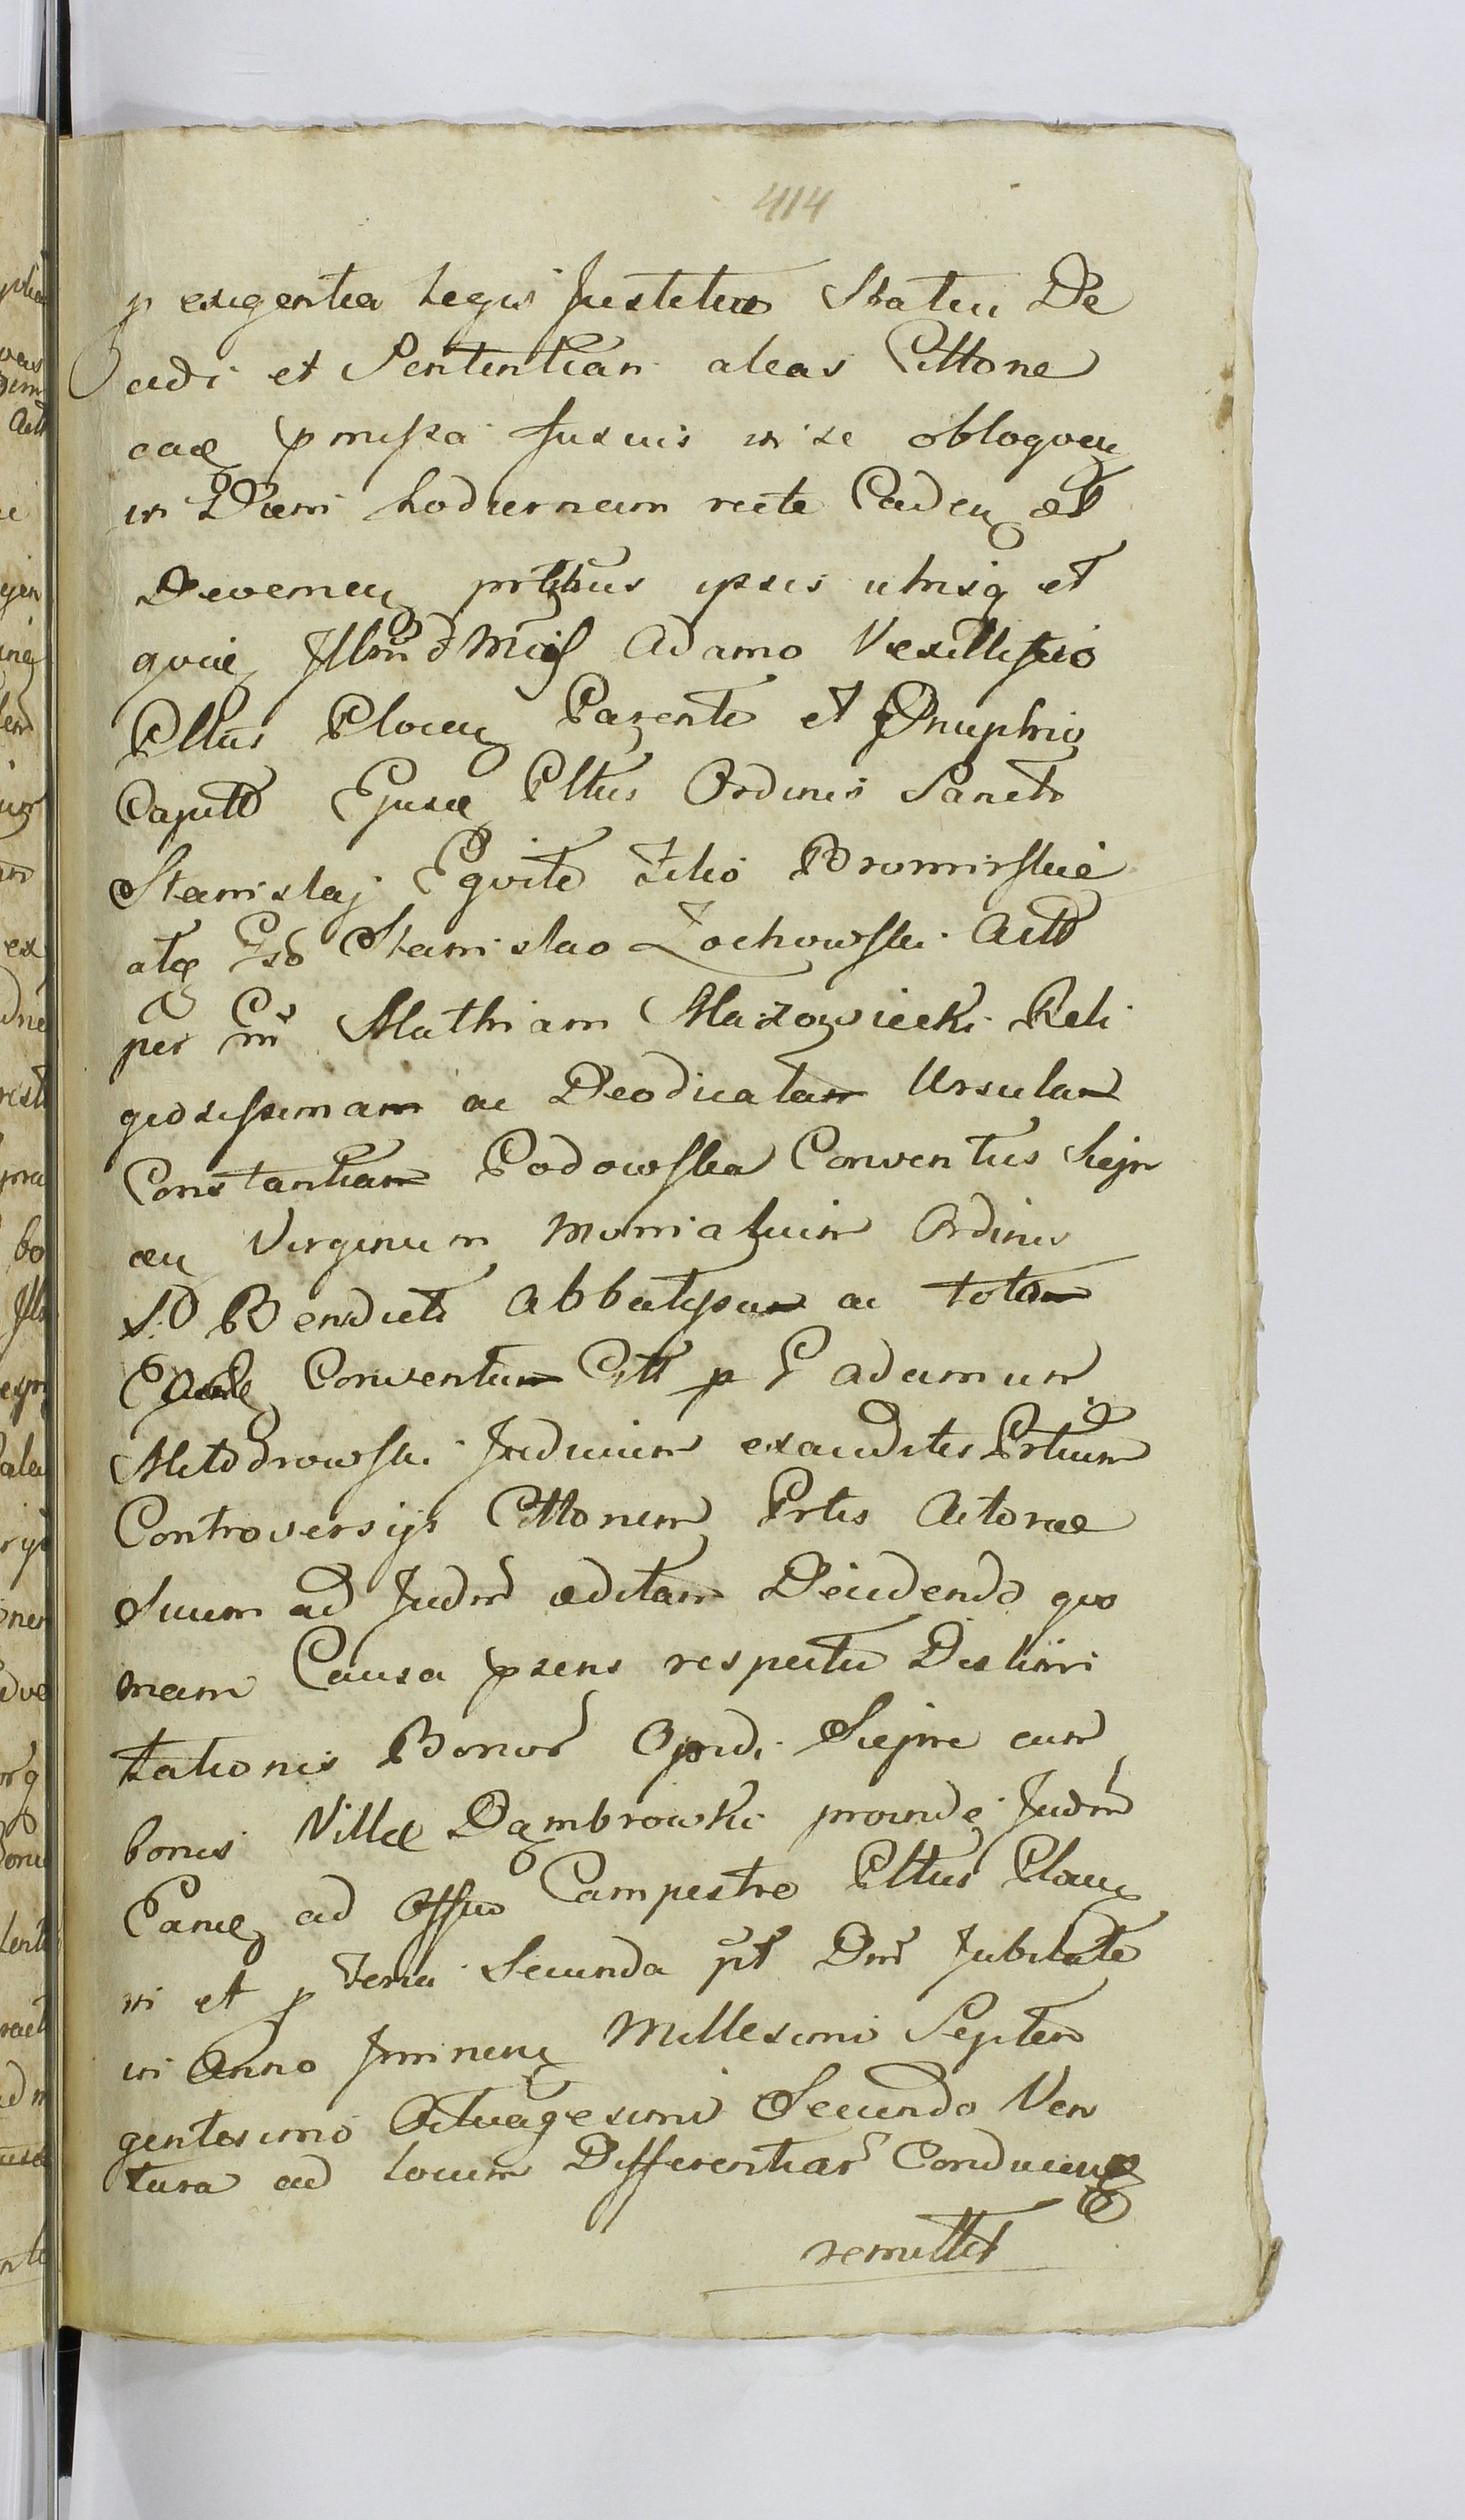 414
p exigentia Legis Justitiae Statu De
cidi et Sententian aleas Cittone
eadq pmissa fusius in se obloquen
in Diem hodiernam recte Caden et
Devenien prtibus ipsis utrisq et
quie Illm d Mag Adamo Vexillifero
Pltus Plocen Parente et Onuphrio
Capitt Ejusd Pltus Ordinis Sancti
Stanislaj Equite Filio Bromirskie
atq Gso Stanislao Zochowski Actt
per Mathiam Mazowiecki Reli
giosissimam ac Deodicatam Ursulam
Constantiam Podowska Conventus Siejn
cen Virginum Monialium Ordinis
S. Bendicti Abbatissam ac totum
Conventum Citt p G Adamum
Mlodrowski Judicium exauditis Prtium
Controversijs Cittonem Prtis Actorae
Suum ad Judm editam Deiudendo quo
niam Causa psens respectu Distimi
tationis Bonor Opidi Siejnie cum
bonis Villae Dąmbrowki proinde Judm
Canc ad Offm Campestre Pltus Plocen
in et p Feria Secunda pt Dm Jubilate
in Anno Iminen Millesimo Septen
gentesimo Octuagesimo Secundo Ven
tura ad Locum Differentiar Conducen
remittit